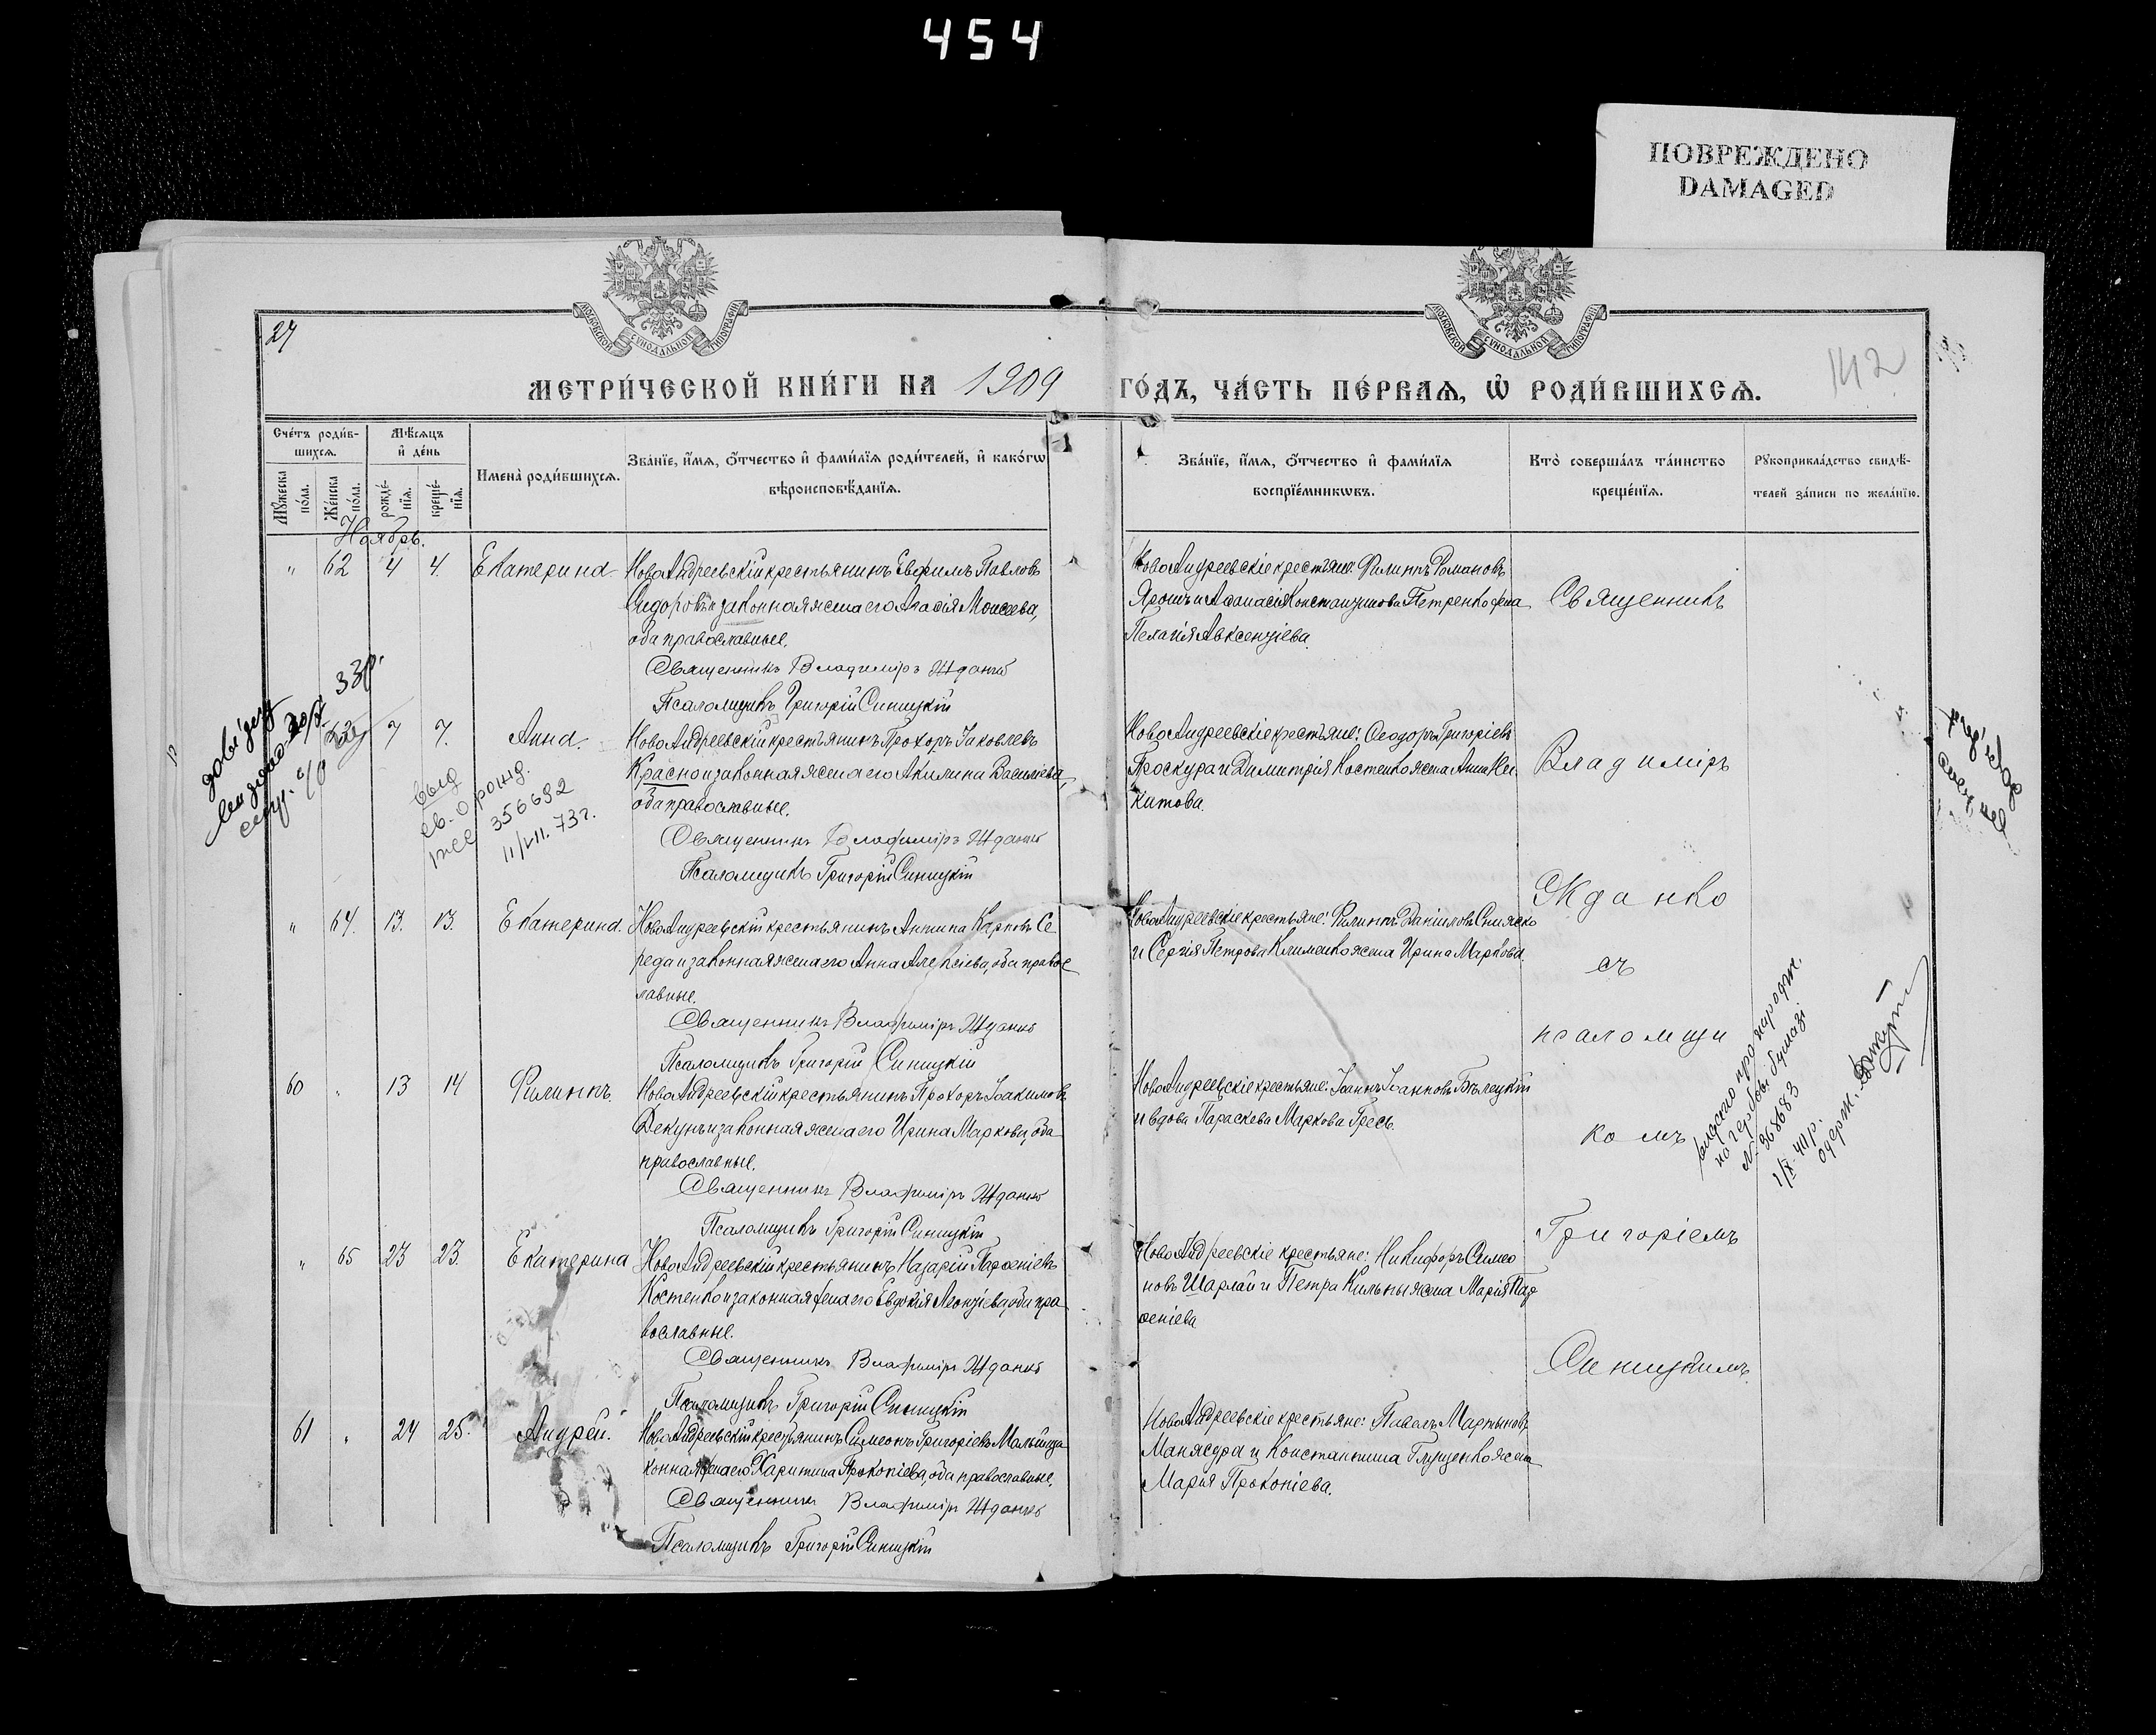 454
ПОВРЕЖДЕНО
DAMAGED
МОСКОВСКОЙ СѴНОДАЛЬНОЙ ТИПОГРАФІИ
МОСКОВСКОЙ СѴНОДАЛЬНОЙ ТИПОГРАФІИ
27
МЕТРИ́ЧЕСКОЙ КНИ́ГИ НА 1909 ГО́ДЪ, ЧА́СТЬ ПЕ́РВАѦ, Ѡ҆ РОДИ́ВШИХСѦ.
142
Сче́тъ роди́в-
шихсѧ.
Мѣ́сѧцъ
и҆ де́нь
Имена̀ роди́вшихсѧ.
Зва́нїе, и҆́мѧ, о҆́тчество и҆ фами́лїѧ роди́телей, и҆ како́гѡ
вѣроисповѣ́данїѧ.
Зва́нїе, и҆́мѧ, о҆́тчество и҆ фами́лїѧ
воспрїе́мникѡвъ.
Кто̀ соверша́лъ та́инство
креще́нїѧ.
Рꙋкоприкла́дство свидѣ́-
телей за́писи по жела́нїю.
Мꙋ́жеска
по́ла.
Же́нска
по́ла.
рожде́-
нїѧ.
креще́-
нїѧ.
Ноябрь.
" 62 4 4. Екатерина Ново Андреевскій крестьянинъ Евфимъ Павловъ
Сидоровъ и законная жена его Агафія Моисеева,
оба православные.
Священникъ Владиміръ Жданко
Псаломщикъ Григорій Синицкій
Ново Андреевскіе крестьяне: Филиппъ Романовъ
Ярошъ и Афанасія Константинова Петренко жена
Пелагія Авксентіева.
7 7. Анна. Ново Андреевскій крестьянинъ Прохоръ Іаковлевъ
Красно и законная жена его Акилина Василіева,
оба православные.
Священникъ Владиміръ Жданко
Псаломщикъ Григорій Синицкій
Ново Андреевскіе крестьяне: Ѳеодоръ Григоріевъ
Проскура и Димитрія Костенко жена Анна Ни-
китова.
33р.
выд
св. о рожд.
356692
11/VII. 73г.
" 64. 13. 13. Екатерина. Ново Андреевскій крестьянинъ Антипа Карповъ Се
реда и законная жена его Анна Алексіева, оба правос
лавные.
Священникъ Владиміръ Жданко
Псаломщикъ Григорій Синицкій
Ново Андреевскіе крестьяне: Филиппъ Даніиловъ
и Сергія Петрова Клименко жена Ирина Маркова.
60 " 13 14 Филиппъ. Ново Андреевскій крестьянинъ Прохоръ Іоакимовъ
Декунъ и законная жена его Ирина Маркова, оба
православные.
Священникъ Владиміръ Жданко
Псаломщикъ Григорій Синицкій
Ново Андреевскіе крестьяне: Іоаннъ Іоанновъ Бѣлецкій
и вдова Параскева Маркова Гресь.
видано про народж.
на гербов. бумазі
№ 368683
1/IX-41р.
одерж.
" 65 23 23. Екатерина Ново Андреевскій крестьянинъ Назарій Парѳеніевъ
Костенко и законная жена его Евдокія Леонтіева, оба пра
вославные.
Священникъ Владиміръ Жданко
Псаломщикъ Григорій Синицкій
Ново Андреевскіе крестьяне: Никифоръ Симео
новъ Шарлай и Петра Кильны жена Марія Пар
ѳеніева
61 " 24 25. Андрей. Ново Андреевскій крестьянинъ Симеонъ Григоріевъ Малый и за
конная жена его Харитина Прокопіева, оба православные.
Священникъ Владиміръ Жданко
Псаломщикъ Григорій Синицкій
Ново Андреевскіе крестьяне: Павелъ Мартыновъ
Манжура и Константина Глущенко жена
Марія Прокопіева.
Священникъ
Владиміръ
Жданко
съ
псаломщи
комъ
Григоріемъ
Синицкимъ.